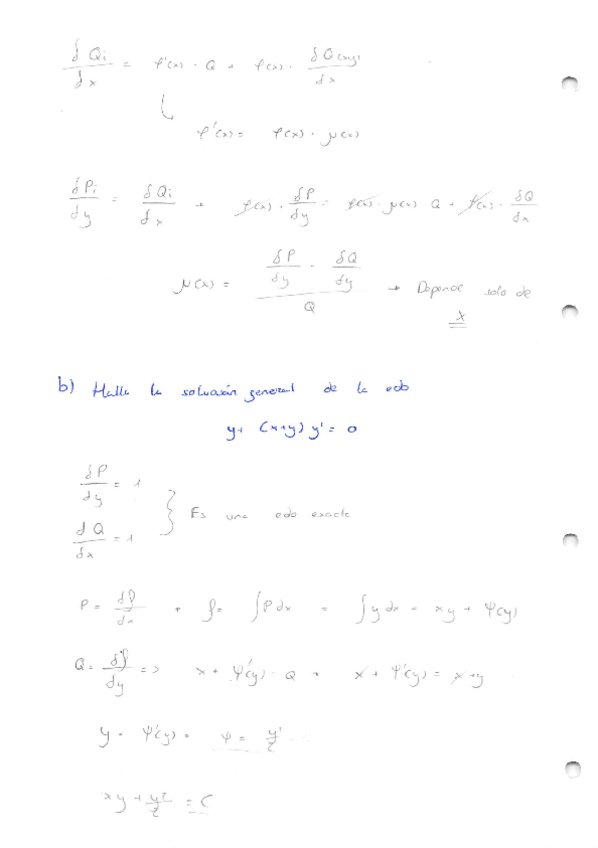 δQi/dx = φ'(x) · Q + φ(x) · δQ(x,y)/dx
φ'(x) = φ(x) · μ(x)
δPi/dy = δQi/dx → φ(x) · δP/dy = φ(x) · μ(x) Q + φ(x) · δQ/dx
μ(x) = (δP/dy - δQ/dy)/Q → Depende solo de x
b) Halla la solución general de la edo
y + (x+y) y' = 0
δP/dy = 1
dQ/dx = 1 } Es una edo exacta
P = df/dx → f = ∫P dx = ∫y dx = xy + Ψ(y)
Q = df/dy => x + Ψ'(y) = Q → x + Ψ'(y) = x+y
y = Ψ'(y) = Ψ = y²/2
xy + y²/2 = C